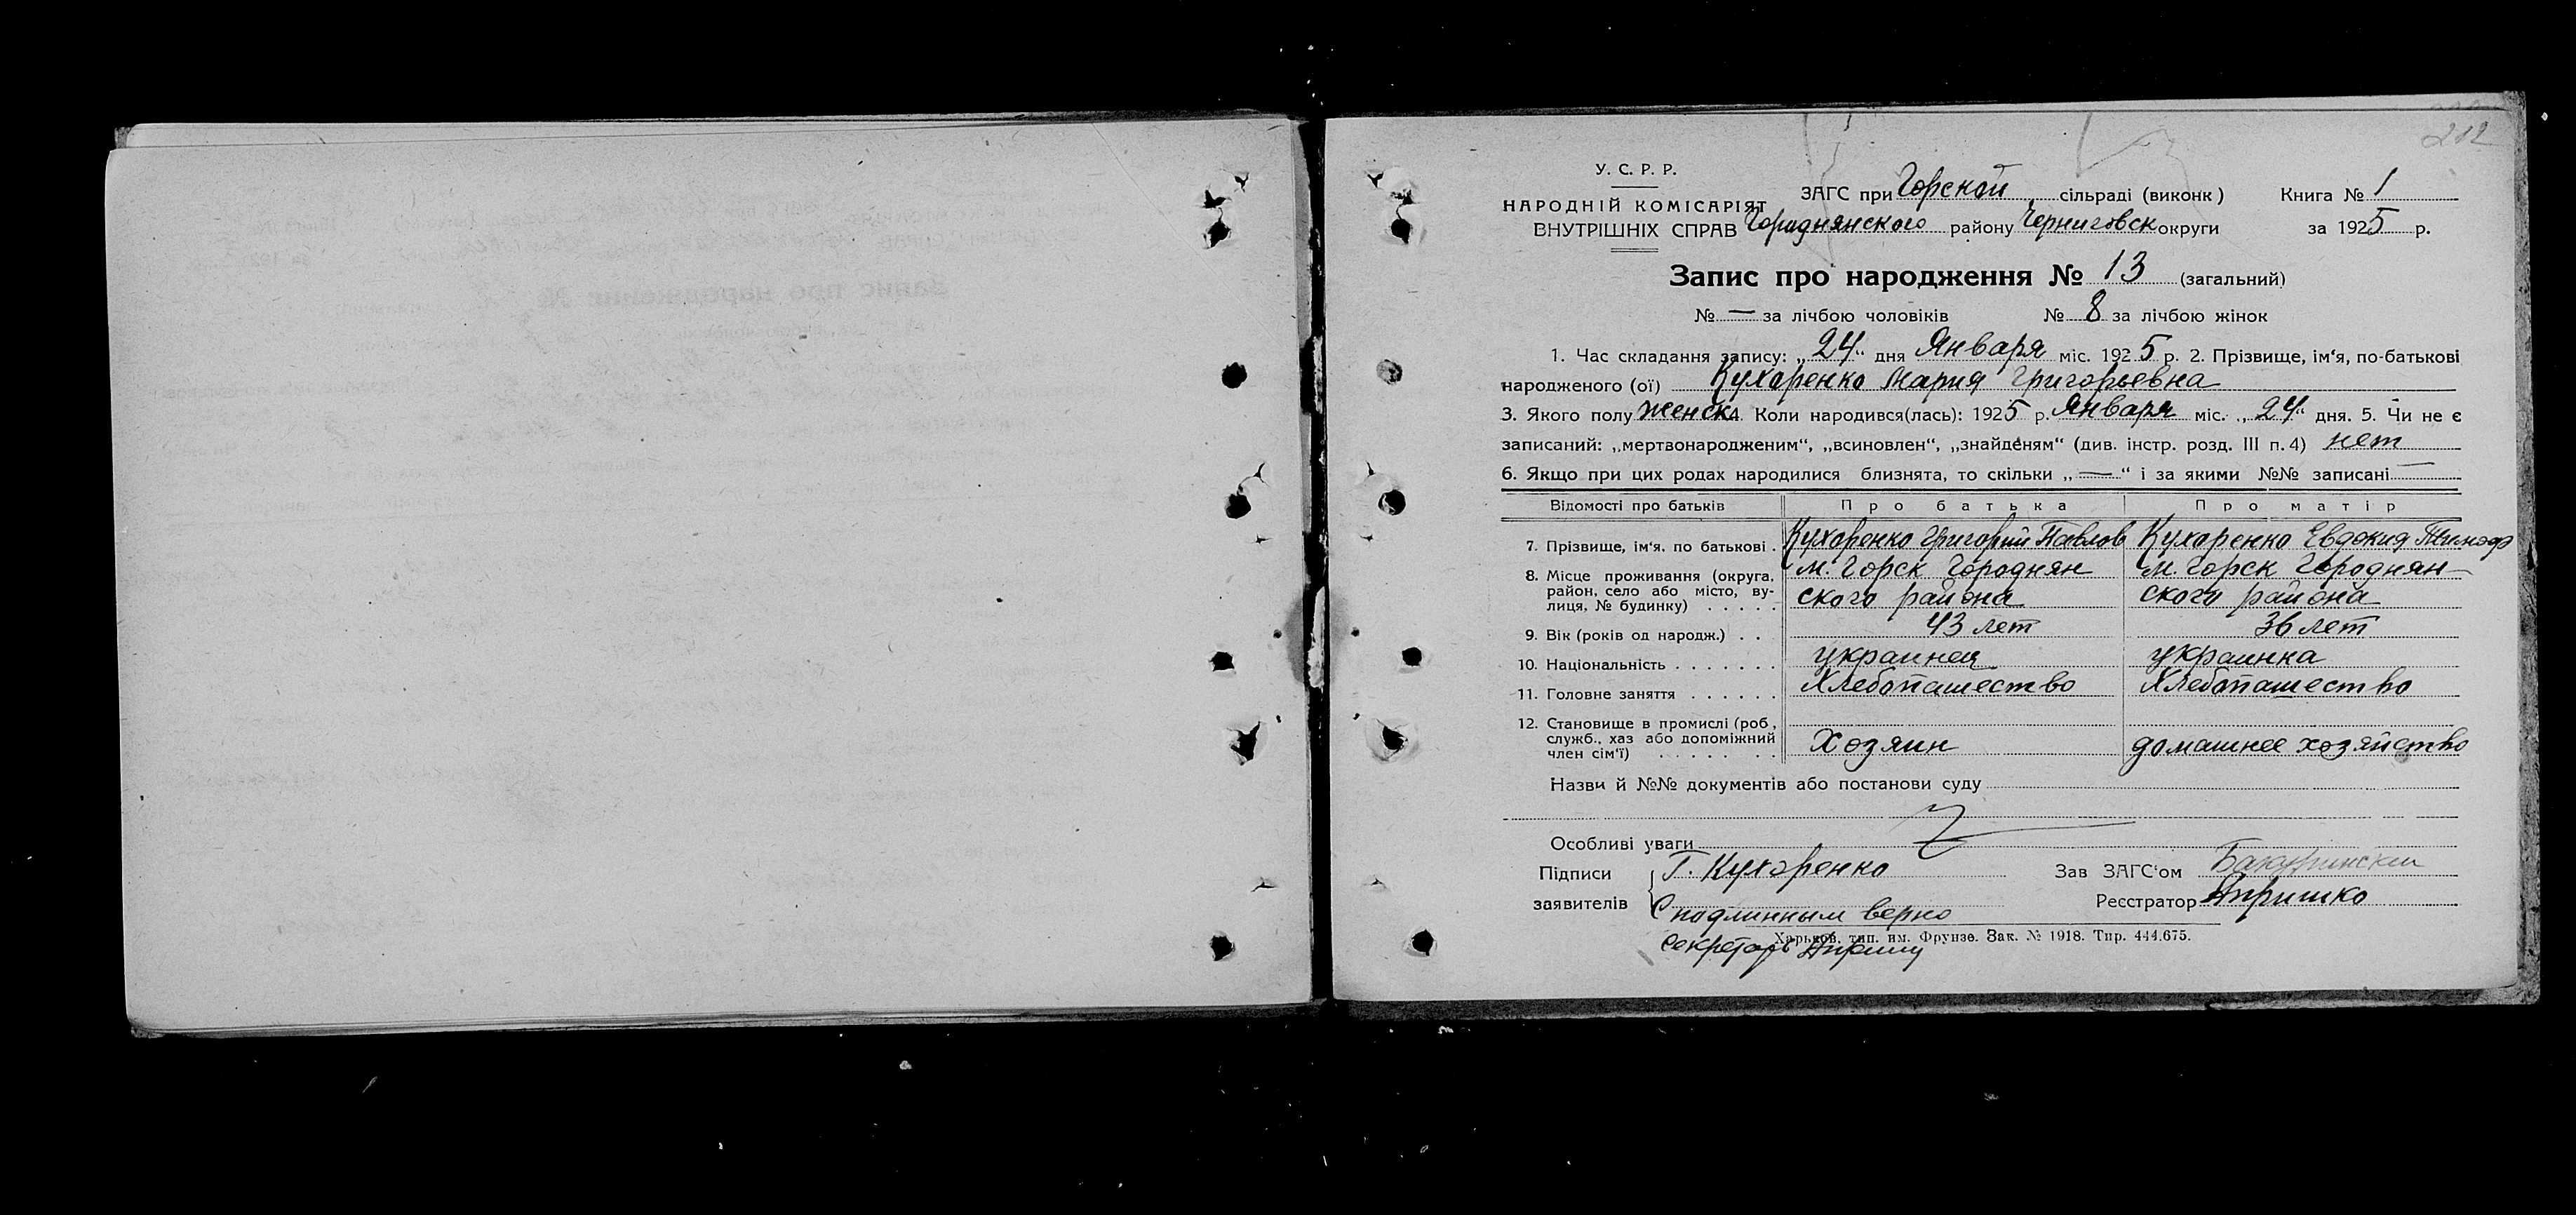 212
У. С. Р. Р.
НАРОДНІЙ КОМІСАРІЯТ
ВНУТРІШНІХ СПРАВ
ЗАГС при Горской сільраді (виконк)
Городнянского району Черниговск округи
Книга № 1
за 1925 р.
Запис про народження № 13 (загальний)
№ — за лічбою чоловіків № 8 за лічбою жінок
1. Час складання запису: „24“ дня Января міс. 1925 р. 2. Прізвище, ім‘я, по-батькові
народженого (ої) Кухаренко Мария Григорьевна
3. Якого полу женск 4. Коли народився(лась): 1925 р. Января міс. „24“ дня. 5. Чи не є
записаний: „мертвонародженим“, „всиновлен“, „знайденям“ (див. інстр. розд. III п. 4) нет
6. Якщо при цих родах народилися близнята, то скільки „—“ і за якими №№ записані —
Відомості про батьків Про батька Про матір
7. Прізвище, ім‘я. по батькові . Кухаренко Григорий Павлов Кухаренко Евдокия Тимоф
8. Місце проживання (округа, район, село або місто, ву- лиця, № будинку) . . . . . м. Горск Городнян ского района м. Горск Городнян- ского района
9. Вік (років од народж.) . . 43 лет 36 лет
10. Національність . . . . . . . украинец украинка
11. Головне заняття . . . . . . Хлебопашество Хлебопашество
12. Становище в промислі (роб, служб., хаз або допоміжний член сім‘ї) . . . . . . . Хозяин домашнее хозяйство
Назви й №№ документів або постанови суду
Особливі уваги
Підписи
заявителів
Г. Кухаренко
Зав ЗАГС‘ом
Реєстратор
С подлинным верно
Харьков, тип. им. Фрунзе. Зак. № 1918. Тир. 444.675.
Секретарь